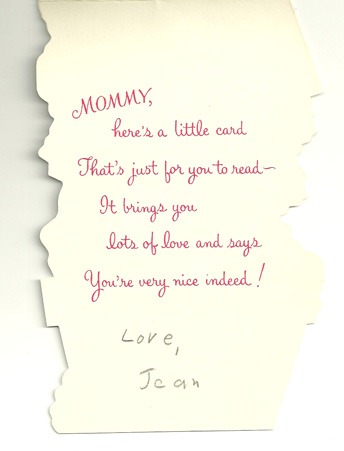 MOMMY,
here's a little card
That's just for you to read—
It brings you
lots of love and says
You're very nice indeed!
Love,
Jean